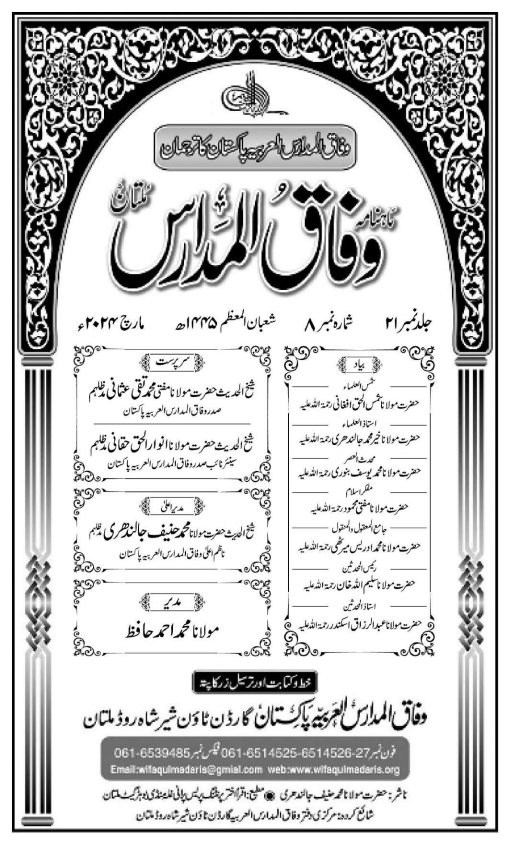 وفاق المدارس العربیہ پاکستان کا ترجمان
ماہنامہ وفاق المدارس ملتان
جلد نمبر ۲۱ شمارہ نمبر ۸ شعبان المعظم ۱۴۴۵ھ مارچ ۲۰۲۴ء
بیاد
شمس العلماء
حضرت مولانا شمس الحق افغانی رحمۃ اللہ علیہ
استاذ العلماء
حضرت مولانا خیر محمد جالندھری رحمۃ اللہ علیہ
محدث العصر
حضرت مولانا محمد یوسف بنوری رحمۃ اللہ علیہ
مفکر اسلام
حضرت مولانا مفتی محمود رحمۃ اللہ علیہ
جامع المعقول والمنقول
حضرت مولانا محمد ادریس میرٹھی رحمۃ اللہ علیہ
رئیس المحدثین
حضرت مولانا سلیم اللہ خان رحمۃ اللہ علیہ
استاذ المحدثین
حضرت مولانا عبدالرزاق اسکندر رحمۃ اللہ علیہ
سرپرست
شیخ الحدیث حضرت مولانا مفتی محمد تقی عثمانی مدظلہم
صدر وفاق المدارس العربیہ پاکستان
شیخ الحدیث حضرت مولانا انوار الحق حقانی مدظلہم
سینئر نائب صدر وفاق المدارس العربیہ پاکستان
مدیر اعلیٰ
شیخ الحدیث حضرت مولانا محمد حنیف جالندھری مدظلہم
ناظم اعلیٰ وفاق المدارس العربیہ پاکستان
مدیر
مولانا محمد احمد حافظ
خط و کتابت اور ترسیل زر کا پتہ
وفاق المدارس العربیہ پاکستان گارڈن ٹاؤن شیر شاہ روڈ ملتان
فون نمبر 061-6514525-6514526-27 فیکس نمبر 061-6539485
Email:wifaqulmadaris@gmial.com web:www.wifaqulmadaris.org
ناشر: حضرت مولانا محمد حنیف جالندھری مطبع: اقرأ اختر پرنٹنگ پریس پرانی غلہ منڈی بوہڑ گیٹ ملتان
شائع کردہ: مرکزی دفتر وفاق المدارس العربیہ گارڈن ٹاؤن شیر شاہ روڈ ملتان